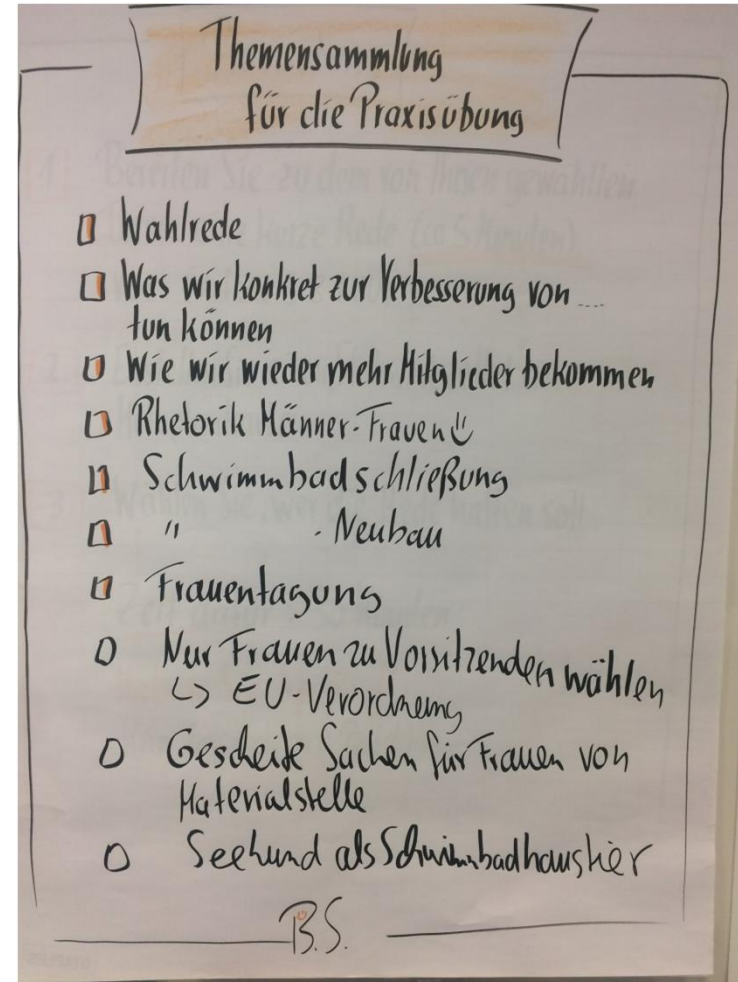 Themensammlung
für die Praxisübung
Wahlrede
Was wir konkret zur Verbesserung von ....
tun können
Wie wir wieder mehr Mitglieder bekommen
Rhetorik Männer-Frauen
Schwimmbadschließung
" - Neubau
Frauentagung
Nur Frauen zu Vorsitzenden wählen
↳ EU-Verordnung
Gescheite Sachen für Frauen von
Materialstelle
Seehund als Schwimmbadhaustier
B.S.